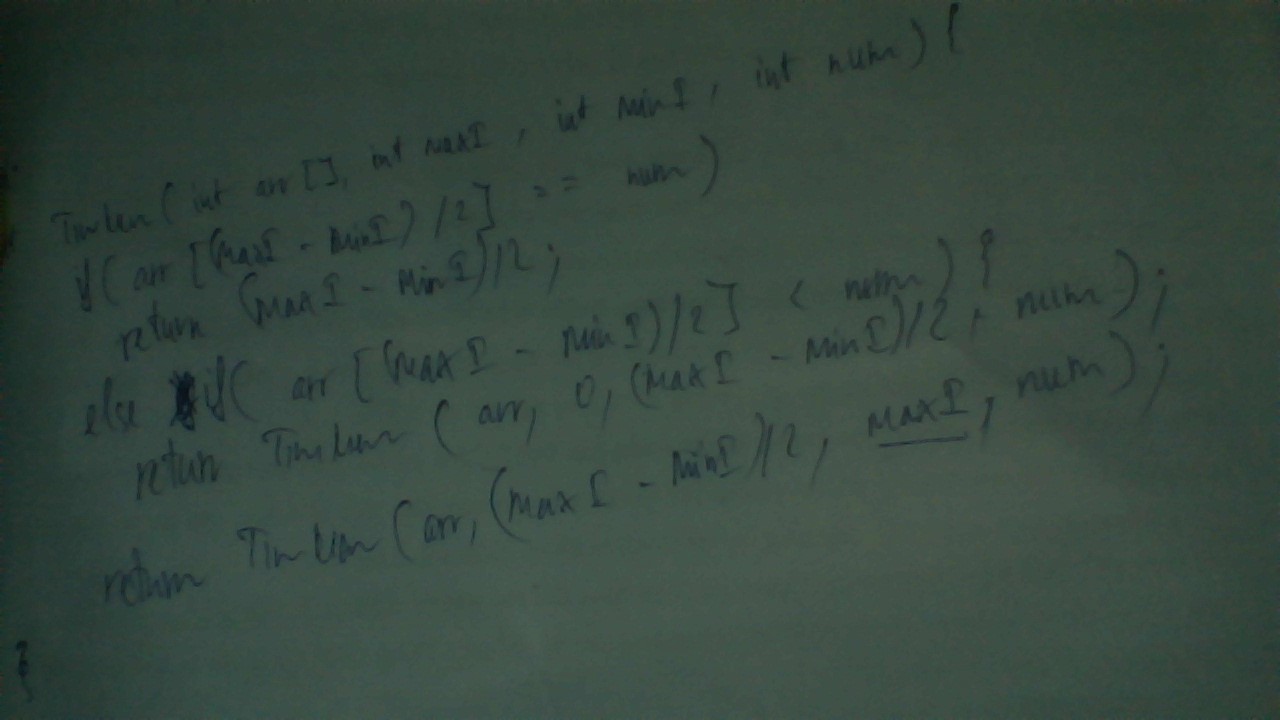 TimKiem( int arr[], int maxI , int minI , int num ) {
if( arr [(maxI - minI) /2] == num )
return (maxI - minI)/2 ;
else if( arr [(maxI - minI)/2] < num ) {
return TimKiem ( arr, 0, (maxI - minI)/2 , num ) ;
return TimKiem ( arr, (maxI - minI)/2 , maxI , num ) ;
}